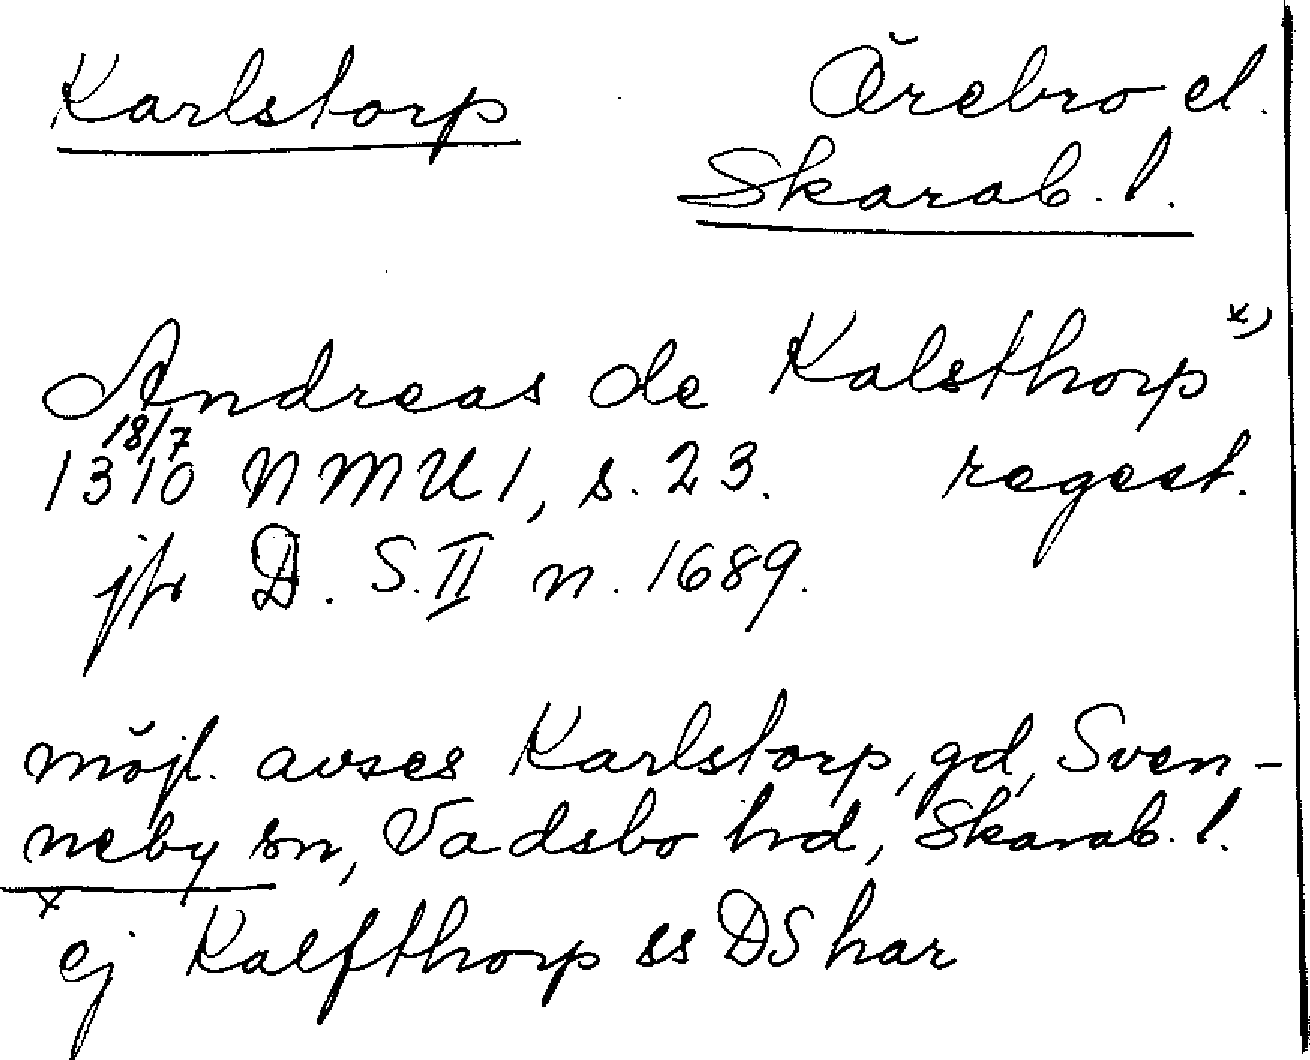 Karlstorp Örebro el.
Skarab. l.
Andreas de Kalsthorp x)
18/7
1310 NMU 1, s. 23. regest.
jfr D. S. II n. 1689.
möjl. avses Karlstorp, gd, Sven-
neby sn, Vadsbo hd, Skarab. l.
x
ej Kalfthorp ss DS har